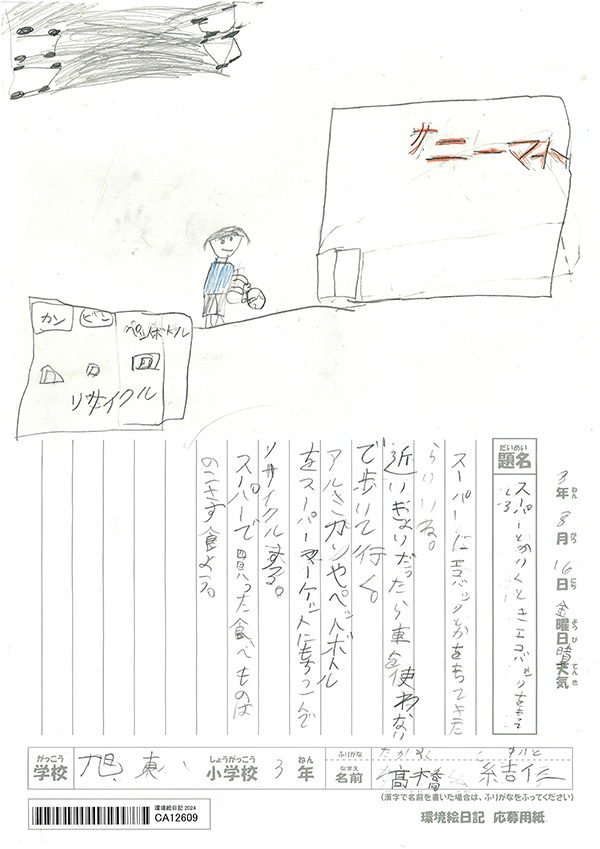 サニーマト
カン
ビン
ペットボトル
リサイクル
3年 8月 16日 金曜日 晴天気
ねん がつ にち ようび てんき
だいめい
題名
スーパーとかいくときエコバッグをもって
スーパーにエコバッグとかをもってきた
らいいね。
近いきょりだったら車を使わない
で歩いて行く。
アルミカンやペットボトル
をスーパーマーケットにもちこんで
リサイクルする。
スーパーで買った食べものは
のこさず食よう。
がっこう
学校
旭東
しょうがっこう
小学校
3
ねん
年
ふりがな
なまえ
名前
高橋 結仁
(漢字で名前を書いた場合は、ふりがなをふってください)
環境絵日記 2024
CA12609
環境絵日記 応募用紙